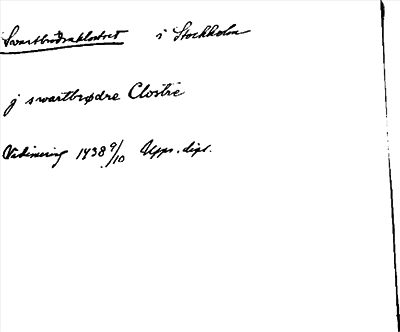 Svartbrödraklostret i Stockholm
j swartbrødre Clostre
Vidimering 1438 9/10 Upps. dipl.